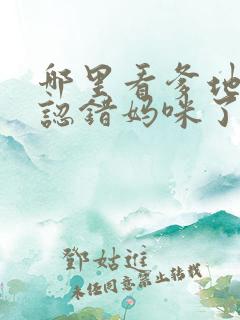 哪里看爹地
認錯妈咪了
鄧姑進
未经同意禁止转载